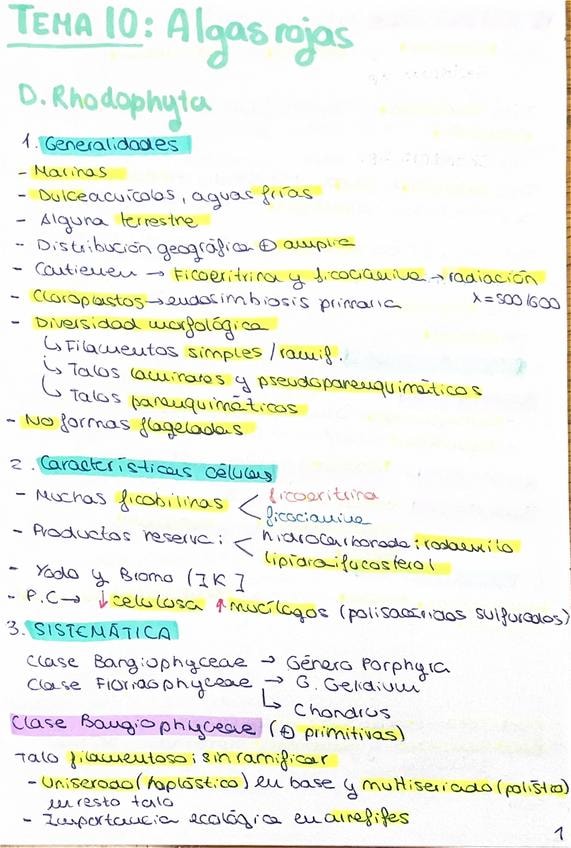 TEMA 10: Algas rojas
D. Rhodophyta
1. Generalidades
- Marinas
- Dulceacuícolas, aguas frías
- Alguna terrestre
- Distribución geográfica ⊕ amplia
- Contienen → Ficoeritrina y ficocianina → radiación
- Cloroplastos → endosimbiosis primaria λ=500/600
- Diversidad morfológica
↳ Filamentos simples/ramif.
↳ Talos laminares y pseudoparenquimáticos
↳ Talos parenquimáticos
- No formas flageladas
2. Características células
- Muchas ficobilinas < ficoeritrina
ficocianina
- Productos reserva: < hidrocarbonada: rodamilo
lipídra: fucosterol
- Yodo y Bromo (IK]
- P.C → ↓ celulosa ↑ mucílagos (polisacáridos sulfurados)
3. SISTEMÁTICA
Clase Bangiophyceae → Género Porphyra
Clase Floridophyceae → G. Gelidium
↳ Chondrus
Clase Bangiophyceae (⊕ primitivas)
Talo filamentoso: sin ramificar
- Uniserado (haplóstico) en base y multiseriado (polístico)
en resto talo
- Importancia ecológica en arrefifes
1